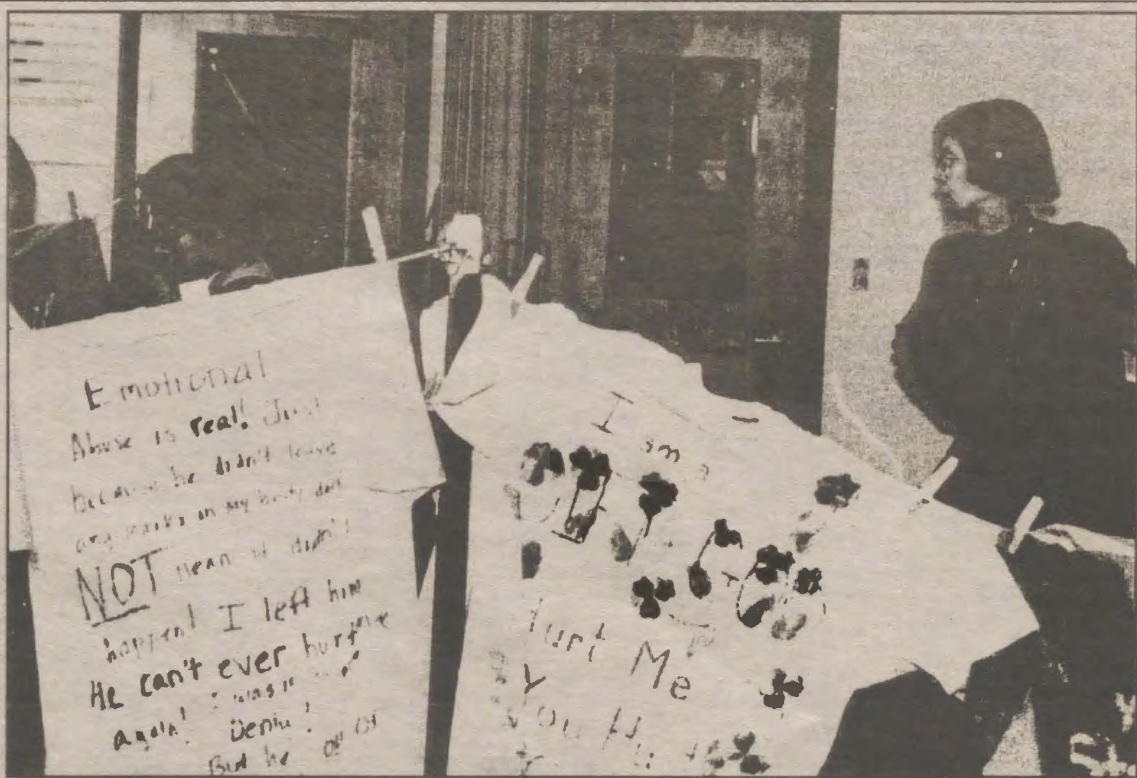 Emotional
Abuse is real! Just
because he didn't leave
any marks on my body does
NOT mean it didn't
happen! I left him
He can't ever hurt me
again! I was in
Denial!
But he
I am a
Hurt Me
You Hurt